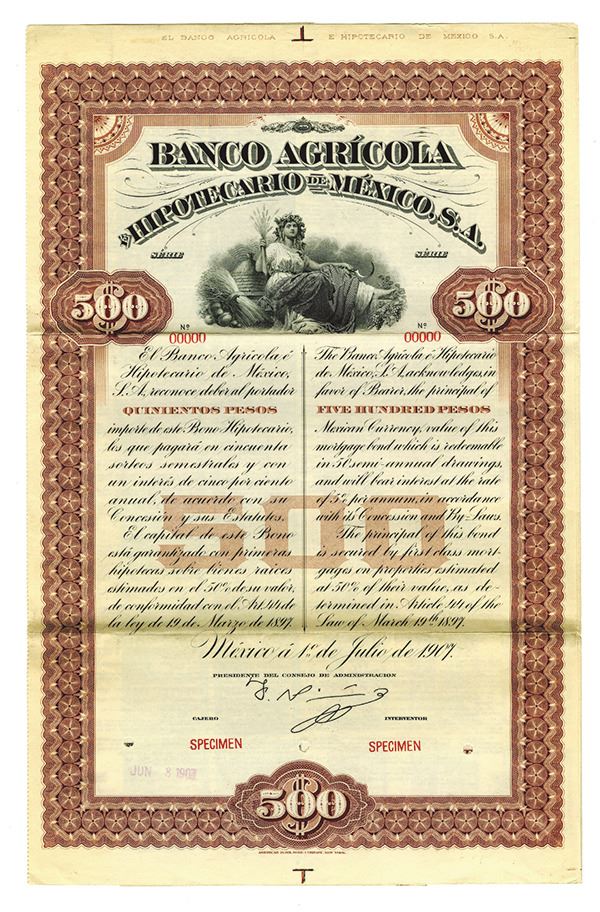 EL BANCO AGRICOLA E HIPOTECARIO DE MEXICO S.A.
BANCO AGRÍCOLA
É HIPOTECARIO DE MÉXICO, S.A.
SÉRIE SÉRIE
500 500
Nº 00000
Nº 00000
El Banco Agrícola é
Hipotecario de México,
S.A., reconoce deber al portador
QUINIENTOS PESOS
importe de este Bono Hipotecario,
los que pagará en cincuenta
sorteos semestrales y con
un interés de cinco por ciento
anual, de acuerdo con su
Concesión y sus Estatutos.
El capital de este Bono
está garantizado en primeras
hipotecas sobre bienes raíces
estimados en el 50% de su valor,
de conformidad con el Art. 44 de
la ley de 19 de Marzo de 1897.
The Banco Agrícola é Hipotecario
de México, S.A., acknowledges, in
favor of Bearer, the principal of
FIVE HUNDRED PESOS
Mexican Currency, value of this
mortgage bond which is redeemable
in 50 semi-annual drawings,
and will bear interest at the rate
of 5% per annum, in accordance
with its Concession and By-Laws.
The principal of this bond
is secured by first class mort-
gages on properties estimated
at 50% of their value, as de-
termined in Article 44 of the
Law of March 19th 1897.
500
México á 1º de Julio de 1907.
PRESIDENTE DEL CONSEJO DE ADMINISTRACION
CAJERO INTERVENTOR
SPECIMEN SPECIMEN
JUN 8 1907
500
AMERICAN BANK NOTE COMPANY, NEW YORK.